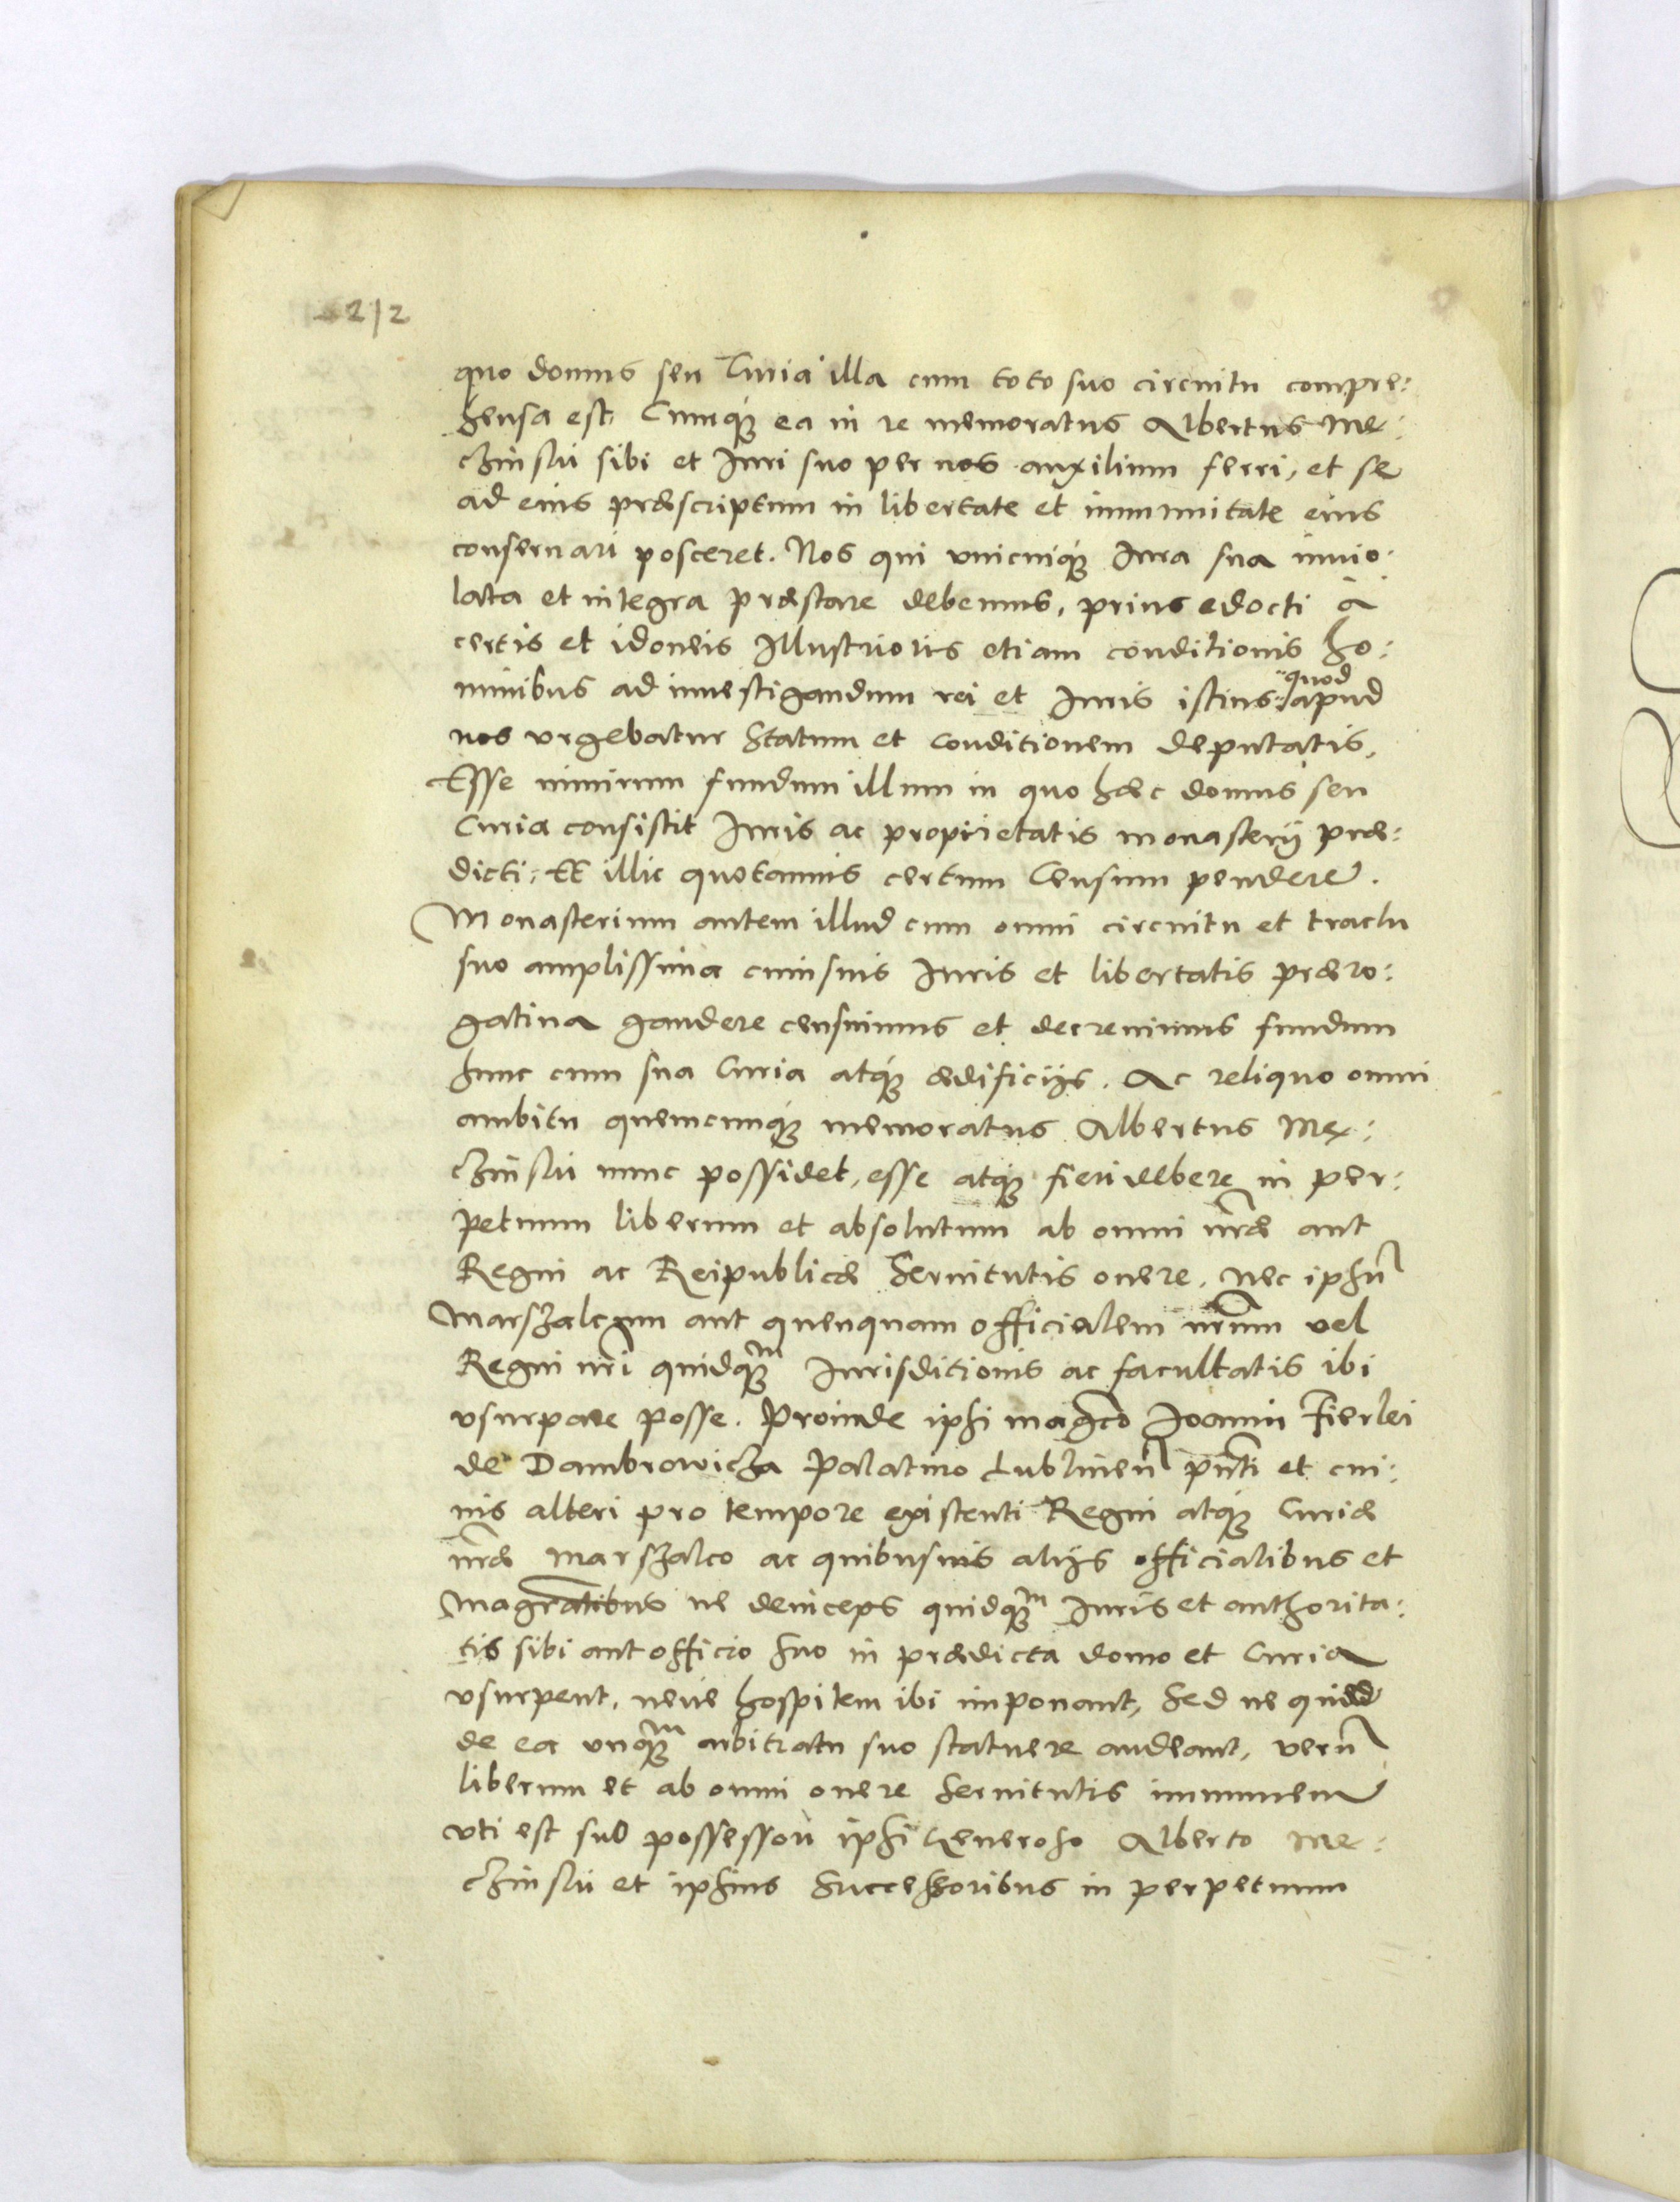 212
quo domus seu Curia illa cum toto suo circuitu compre:
hensa est. Cumq́ue ea in re memoratus Albertus Me:
czinski sibi et Juri suo per nos auxilium ferri, et se
ad eius præscriptum in libertate et immunitate eius
conseruari posceret. Nos qui vnicuiq́ue Jura sua inuio:
lata et integra præstare debemus, prius edocti à
certis et idoneis Illustrioris etiam conditionis ho:
minibus ad inuestigandum rei et Juris istius quod apud
nos vrgebatur Statum et conditionem deputatis,
Esse nimirum fundum illum in quo hæc domus seu
Curia consistit Juris ac proprietatis monasterÿ præ:
dicti, Et illic quotannis certum Censum pendere.
Monasterium autem illud cum omni circuitu et tractu
suo amplissima cuiusuis Juris et libertatis præro:
gatiua gaudere censuimus et decreuimus fundum
hunc cum sua Curia atq́ue ædificijs. Ac reliquo omni
ambitu quemcunq́ue memoratus Albertus Me:
czinski nunc possidet, esse atq́ue fieri debere in per:
petuum liberum et absolutum ab omni nr̃æ aut
Regni ac Reipublicæ Seruitutis onere, nec ipsũ
Marszalcum aut quenquam officialem nr̃um vel
Regni nr̃i quidq̃m Jurisditionis ac facultatis ibi
vsurpare posse. Proinde ipsi magco Joanni Fierlei
de Dambrowicza Palatino Lublineñ pñti et cui:
uis alteri pro tempore existenti Regni atq́ue Curiæ
nr̃æ Marszalco ac quibusuis alijs officialibus et
magr̃atibus ne deinceps quidq̃m Juris et authorita:
tis sibi aut officio suo in prædicta domo et Curia
vsurpent, neue hospitem ibi imponant, Sed ne quid
de ea vnq̃m arbitratu suo statuere audeant, verũ
liberum et ab omni onere Seruitutis immunem
vti est sub possessori ipsi Generoso Alberto Me:
czinski et ipsius Successoribus in perpetuum